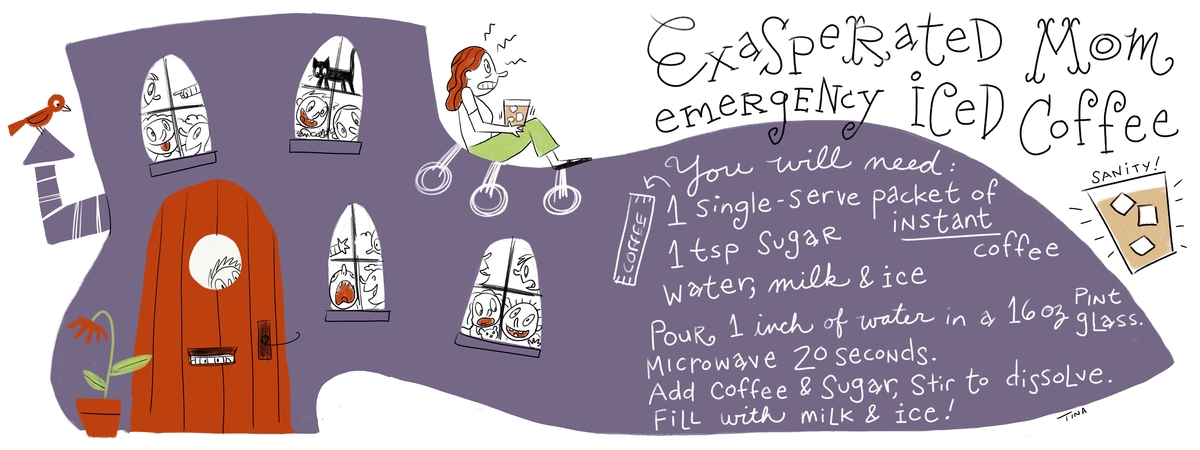 Exasperated Mom
emergency iced Coffee
SANITY!
You will need:
COFFEE
1 single-serve packet of
instant
coffee
1 tsp Sugar
water, milk & ice
Pour 1 inch of water in a 16 oz Pint
glass.
Microwave 20 seconds.
Add Coffee & Sugar, Stir to dissolve.
Fill with milk & ice!
TINA